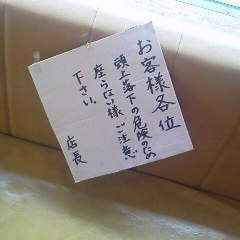 お客様各位
頭上落下の危険のため
座らない様、ご注意
下さい。
店長